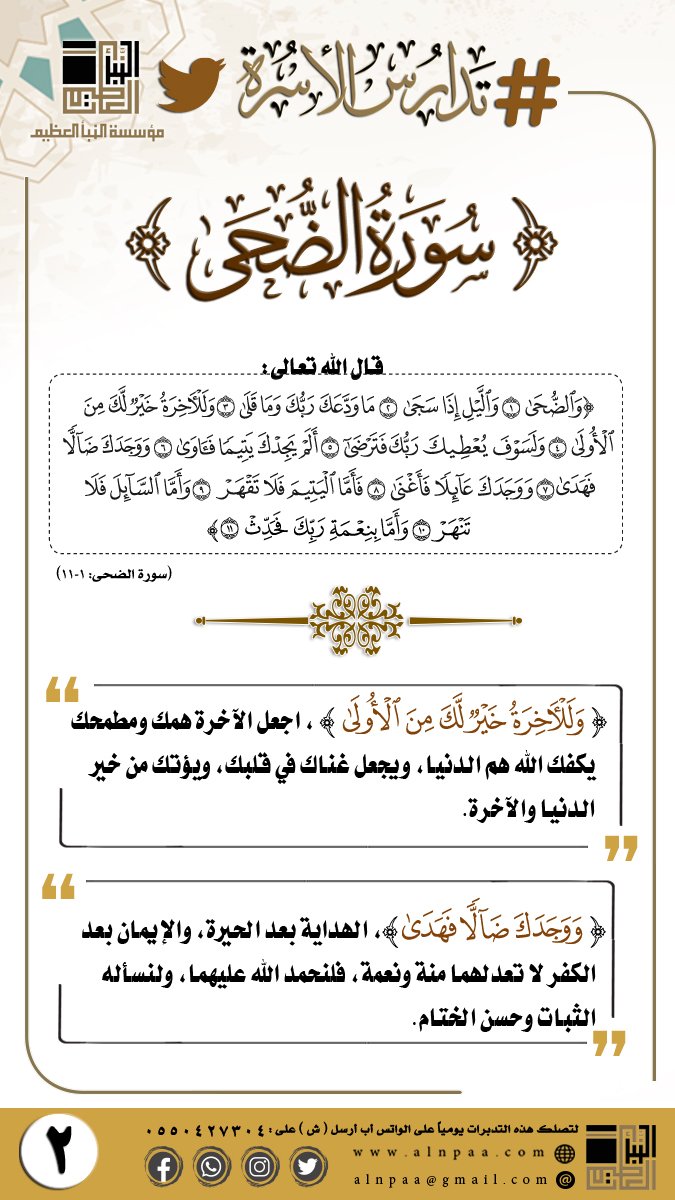 #تدارس الأسرة
النبأ العظيم
مؤسسة النبأ العظيم
﴿ سُورَةُ الضُّحَى ﴾
قال الله تعالى:
﴿وَٱلضُّحَىٰ ١ وَٱلَّيۡلِ إِذَا سَجَىٰ ٢ مَا وَدَّعَكَ رَبُّكَ وَمَا قَلَىٰ ٣ وَلَلۡأٓخِرَةُ خَيۡرٞ لَّكَ مِنَ
ٱلۡأُولَىٰ ٤ وَلَسَوۡفَ يُعۡطِيكَ رَبُّكَ فَتَرۡضَىٰٓ ٥ أَلَمۡ يَجِدۡكَ يَتِيمٗا فَـَٔاوَىٰ ٦ وَوَجَدَكَ ضَآلّٗا
فَهَدَىٰ ٧ وَوَجَدَكَ عَآئِلٗا فَأَغۡنَىٰ ٨ فَأَمَّا ٱلۡيَتِيمَ فَلَا تَقۡهَرۡ ٩ وَأَمَّا ٱلسَّآئِلَ فَلَا
تَنۡهَرۡ ١٠ وَأَمَّا بِنِعۡمَةِ رَبِّكَ فَحَدِّثۡ ١١ ﴾
(سورة الضحى: ١-١١)
﴿ وَلَلۡأٓخِرَةُ خَيۡرٞ لَّكَ مِنَ ٱلۡأُولَىٰ ﴾ ، اجعل الآخرة همك ومطمحك
يكفك الله هم الدنيا، ويجعل غناك في قلبك، ويؤتك من خير
الدنيا والآخرة.
﴿ وَوَجَدَكَ ضَآلّٗا فَهَدَىٰ ﴾، الهداية بعد الحيرة، والإيمان بعد
الكفر لا تعدلهما منة ونعمة، فلنحمد الله عليهما، ولنسأله
الثبات وحسن الختام.
لتصلك هذه التدبرات يومياً على الواتس أب أرسل ( ش ) على : ٠٥٥٠٤٢٧٣٠٤
www.alnpaa.com
alnpaa@gmail.com
٢
النبأ العظيم